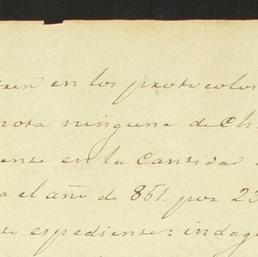 en los protocolos
nota ninguna de Ch
en la Cantidad
a el año de 851 por 23
espediente: indag